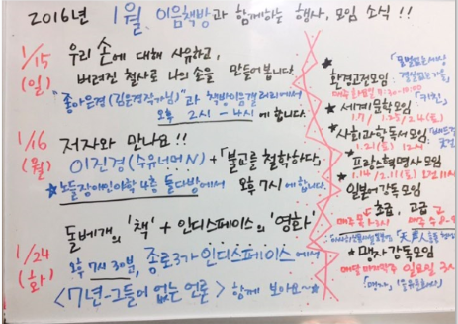 2016년 1월, 이음책방과 함께하는 행사, 모임 소식 !!
1/15
(일)
우리 손에 대해 사유하고,
버려진 철사로 나의 손을 만들어봅니다.
"좋아은경(김은경작가님)"과 책방이음갤러리에서
오후 2시 ~ 4시에 합니다.
1/16
(월)
저자와 만나요 !!
이진경(수유너머N) + 「불교를 철학하다」
★노들장애인야학 4층 들다방에서 오후 7시에 합니다.
1/24
(화)
돌베개의 '책' + 인디스페이스의 '영화'
오후 7시 30분, 종로3가 인디스페이스에서
<7년-그들이 없는 언론> 함께 보아요~★
★환경고전모임
★세계문학모임
1.7/
★사회과학독서모임
1.21(토) 12시
★프랑스혁명사모임
1.14 / 2.11(토)
★일본어강독모임
초급, 고급
★맹자강독모임
매달 마지막주 일요일 3시
「맹자」